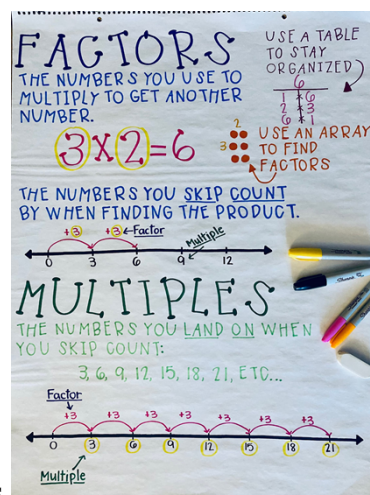 FACTORS
THE NUMBERS YOU USE TO
MULTIPLY TO GET ANOTHER
NUMBER.
3X2=6
USE A TABLE
TO STAY
ORGANIZED
6
1 x 6
2 x 3
6 x 1
2
3
USE AN ARRAY
TO FIND
FACTORS
THE NUMBERS YOU SKIP COUNT
BY WHEN FINDING THE PRODUCT.
+3 +3 ←Factor
Multiple
0 3 6 9 12
MULTIPLES
THE NUMBERS YOU LAND ON WHEN
YOU SKIP COUNT:
3, 6, 9, 12, 15, 18, 21, ETC...
Factor
+3 +3 +3 +3 +3 +3 +3
0 3 6 9 12 15 18 21
Multiple